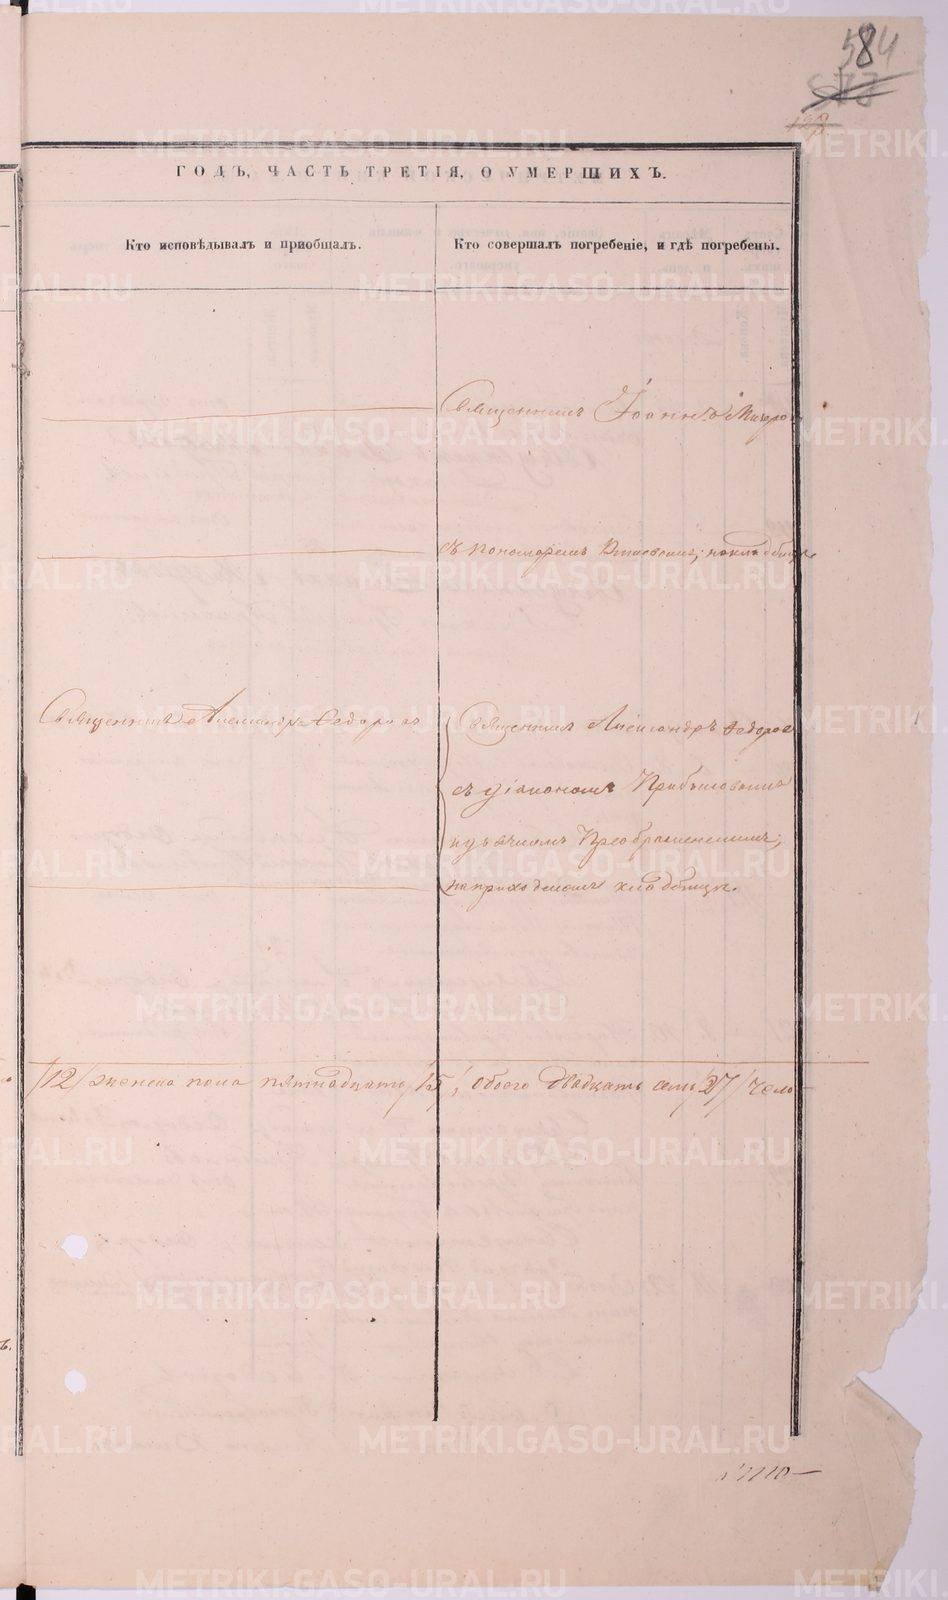 584
ГОДЪ, ЧАСТЬ ТРЕТІЯ, О УМЕРШИХЪ.
Кто исповѣдывалъ и приобщалъ.
Кто совершалъ погребеніе, и гдѣ погребены.
Священникъ Іоаннъ
съ пономаремъ
Священникъ Александръ Федоровъ
Священникъ Александръ Федоровъ
съ діакономъ
и дьячкомъ Преображенскимъ;
на приходскомъ кладбищѣ.
/12/ женска пола пятнадцать /15/, обоего двадцать семь /27/ чело
METRIKI.GASO-URAL.RU